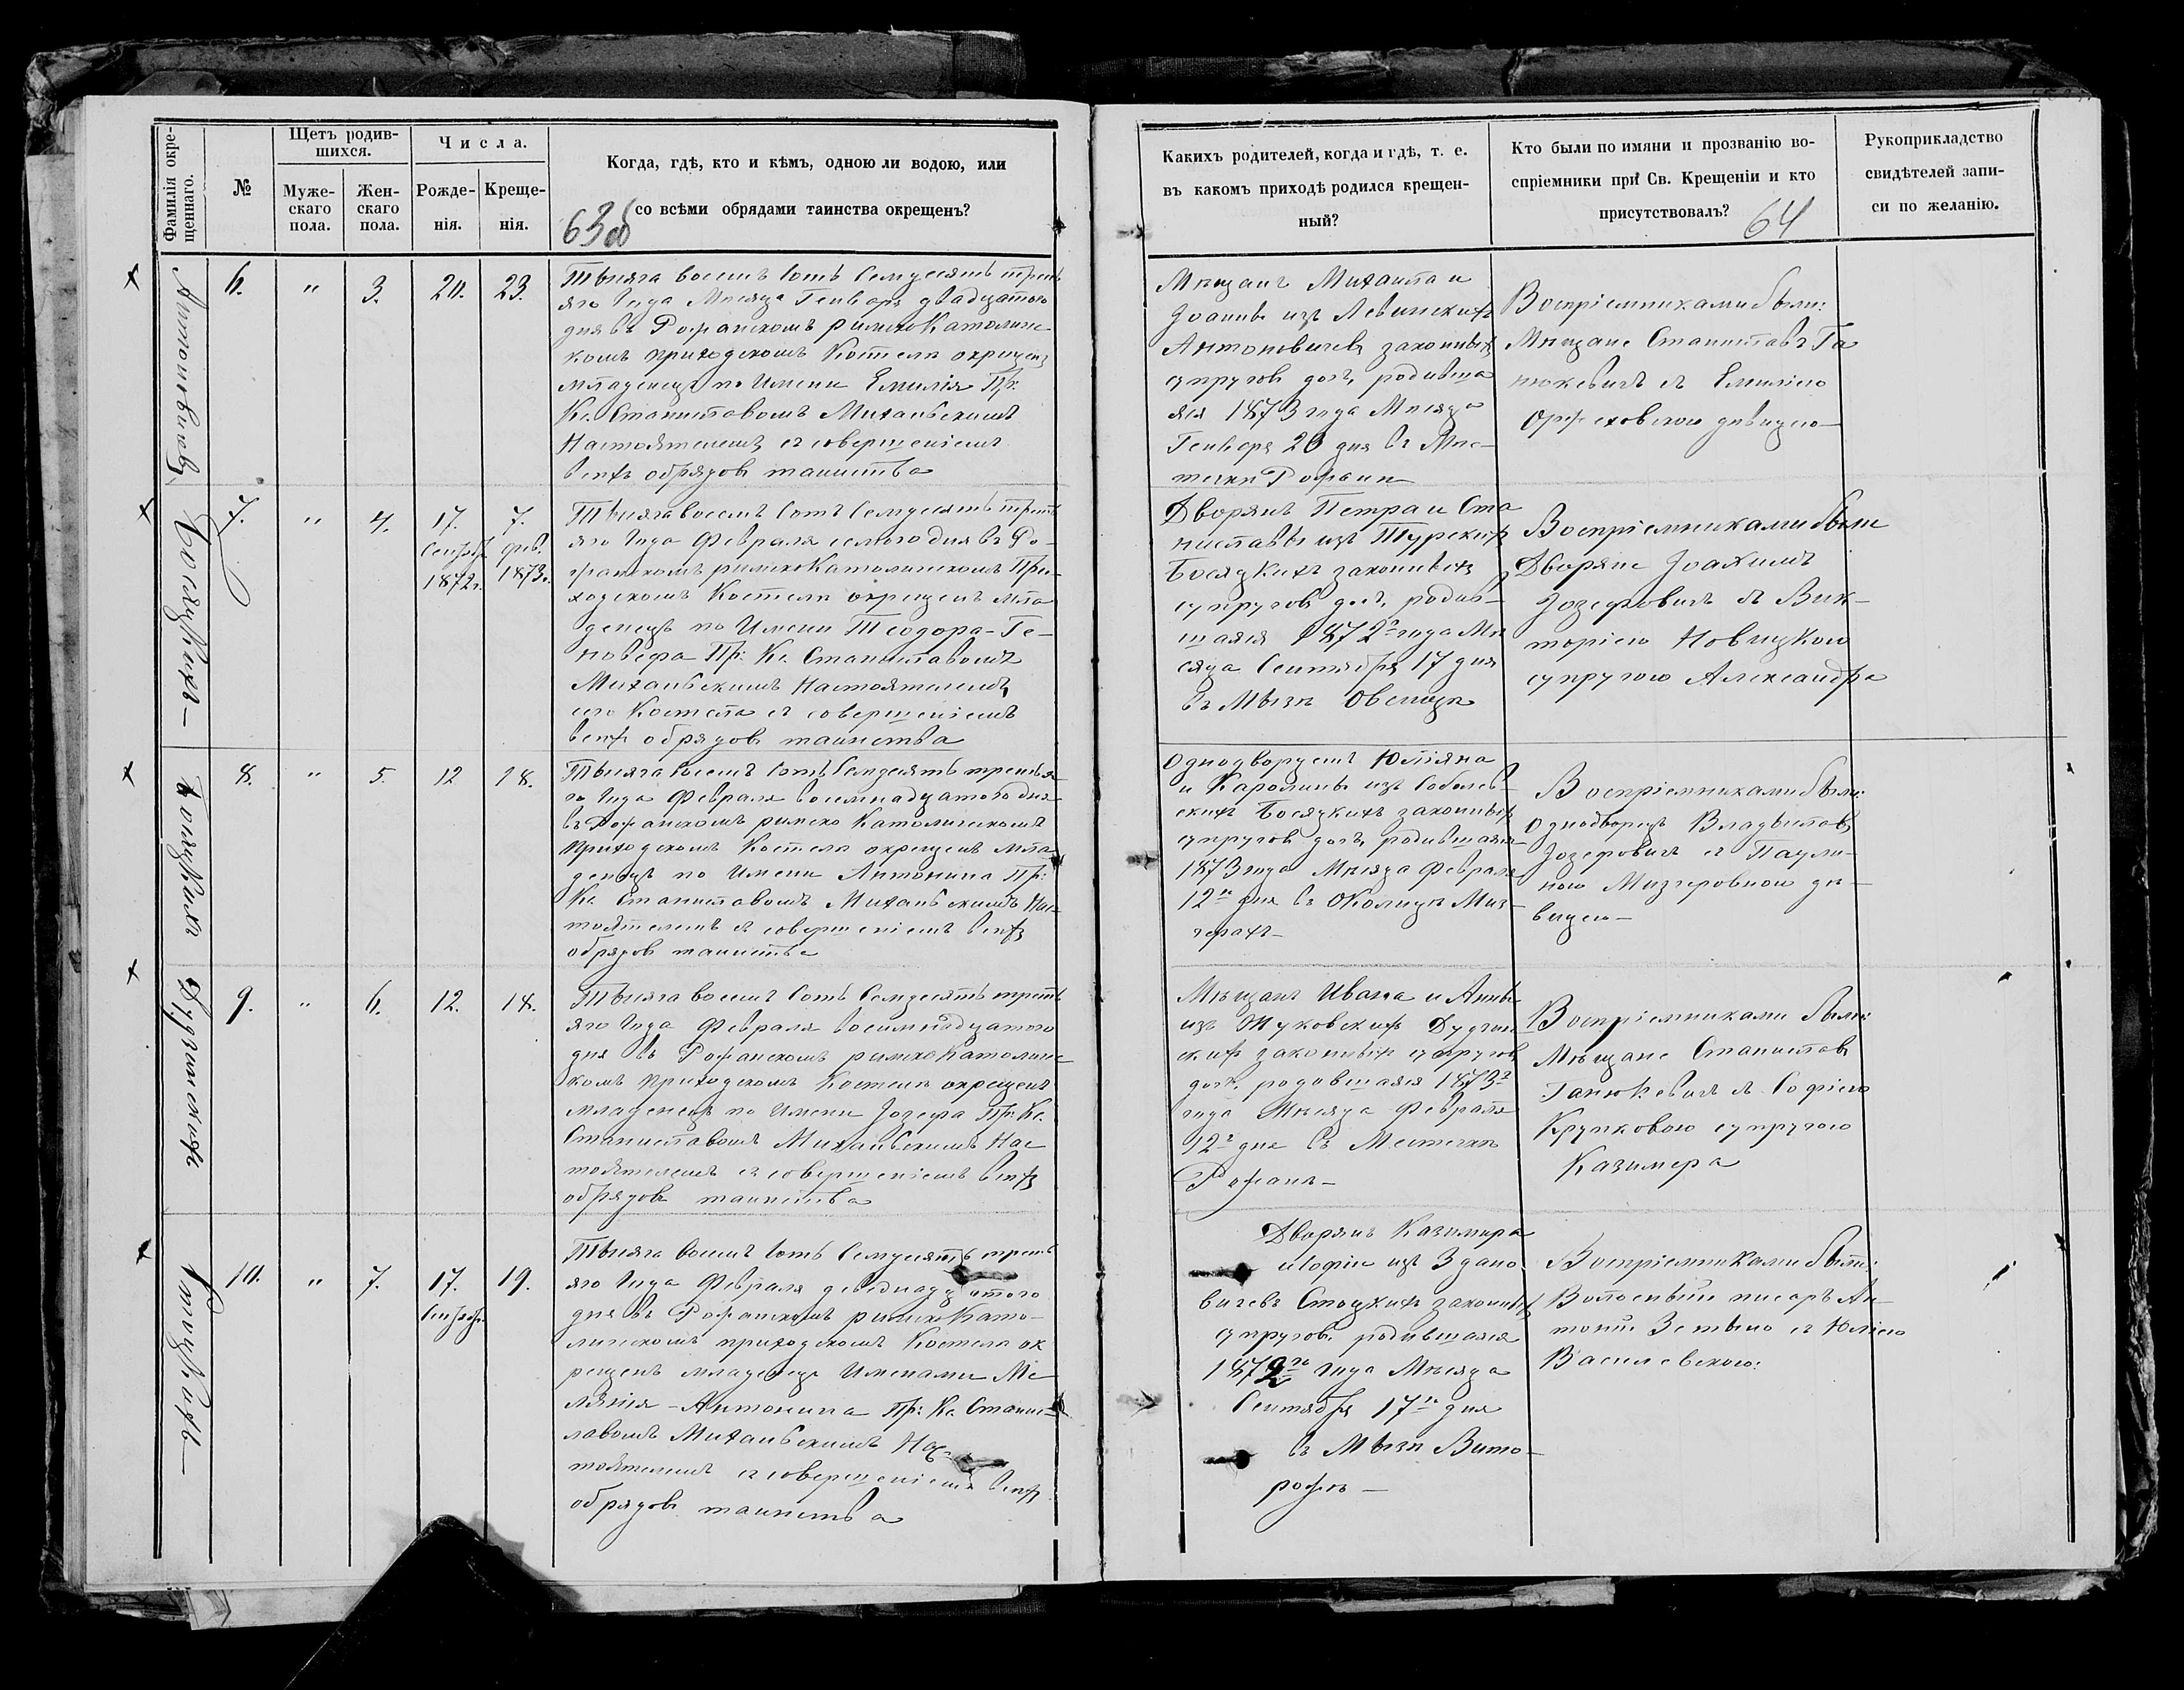 Фамилія окре-
щеннаго.
№
Щетъ родив-
шихся.
Муже-
скаго
пола.
Жен-
скаго
пола.
Числа.
Рожде-
нія.
Креще-
нія.
Когда, гдѣ, кто и кѣмъ, одною ли водою, или
со всѣми обрядами таинства окрещенъ?
63об
Антоновичъ
6. " 3. 20. 23.
Тысяча восемь сотъ семдесятъ треть
яго года Мѣсяца Генваря двадцатого
дня въ Рожанскомъ римско Католичес
комъ приходскомъ Костелѣ окрещенъ
младенецъ по Имени Емилія Пр:
Кс. Станиславомъ Михаловскимъ
Настоятелемъ съ совершеніемъ
всѣхъ обрядовъ таинства
Босяцкихъ
7. " 4. 17. 7.
Сентяб. фев.
1872г. 1873г.
Тысяча восемь сотъ семдесятъ треть
яго года Февраля седмого дня въ Ро-
жанскомъ римско Католическомъ При-
ходскомъ Костелѣ окрещенъ мла
денецъ по Имени Теодора-Ге-
новефа Пр: Кс. Станиславомъ
Настоятелемъ
сего Костела съ совершеніемъ
всѣхъ обрядовъ таинства
8. " 5. 12 18.
Тысяча восемь сотъ семдесятъ третья
го года Февраля восемнадцатого дня
въ Рожанскомъ римско Католическомъ
приходскомъ Костелѣ окрещенъ мла-
денецъ по Имени Антонина Пр:
Кс. Станиславомъ Нас-
тоятелемъ съ совершеніемъ всѣхъ
обрядовъ таинства
9. " 6. 12. 18.
Тысяча восемь сотъ семдесятъ треть
яго года Февраля восемнадцатого
дня въ Рожанскомъ римско Католичес
комъ приходскомъ Костелѣ окрещенъ
младенецъ по Имени Іозефа Пр: Кс.
Станиславомъ Нас
тоятелемъ съ совершеніемъ всѣхъ
обрядовъ таинства
10. " 7. 17. 19.
Сентяб.
Тысяча восемь сотъ семдесятъ треть
яго года Февраля девятнадцатого
дня въ Рожанскомъ римско Като-
лическомъ приходскомъ Костелѣ ок
рещенъ младенецъ Именами Ме
ланія-Антонина Пр: Кс. Станис-
лавомъ Нас-
тоятелемъ съ совершеніемъ всѣхъ
обрядовъ таинства
Какихъ родителей, когда и гдѣ, т. е.
въ какомъ приходѣ родился крещен-
ный?
Кто были по имяни и прозванію во-
спріемники при Св. Крещеніи и кто
присутствовалъ?
64
Рукоприкладство
свидѣтелей запи-
си по желанію.
Мѣщанъ Михаила и
Іоанны изъ Левинскихъ
Антоновичевъ законныхъ
супруговъ дочь, родивша
яся 1873 года Мѣсяца
Генваря 20 дня въ Мѣс-
течкѣ Рожанѣ
Воспріемниками были:
Мѣщане Станиславъ Га
нюкевичъ съ Емиліею
девицею
Дворянъ Петра и Ста
ниславы изъ Турскихъ
Босяцкихъ законныхъ
супруговъ дочь, родив-
шаяся 1872 года Мѣ
сяца Сентября 17 дня
въ Мызѣ
Воспріемниками были
Дворяне Іоахимъ
Іозефовичъ съ Вик-
торіею Новицкою
супругою Александра
Однодворцевъ Юліяна
и Каролины изъ Соболев-
скихъ Босяцкихъ законныхъ
супруговъ дочь, родившаяся
1873 года Мѣсяца Февраля
12го дня въ Околицѣ Миз-
герахъ
Воспріемниками были:
Однодворецъ Владыславъ
Іозефовичъ съ Паули-
ною Мизгеровною дѣ-
вицею
Мѣщанъ Ивана и Анны
изъ Жуковскихъ Дудчин
скихъ законныхъ супруговъ
дочь, родившаяся 1873г
года Мѣсяца Февраля
12г дня въ Местечкѣ
Рожанѣ
Воспріемниками были:
Мѣщане Станиславъ
Ганюкевичъ съ Софіею
Крупковою супругою
Казимера
Дворянъ Казимира
и Софіи изъ Здано
вичевъ Стоцкихъ законныхъ
супруговъ, родившаяся
1872го года Мѣсяца
Сентября 17го дня
въ Мызѣ Вито-
рожѣ
Воспріемниками были:
Волосный писаръ Ан-
тоній съ Юліею
Василевскою: